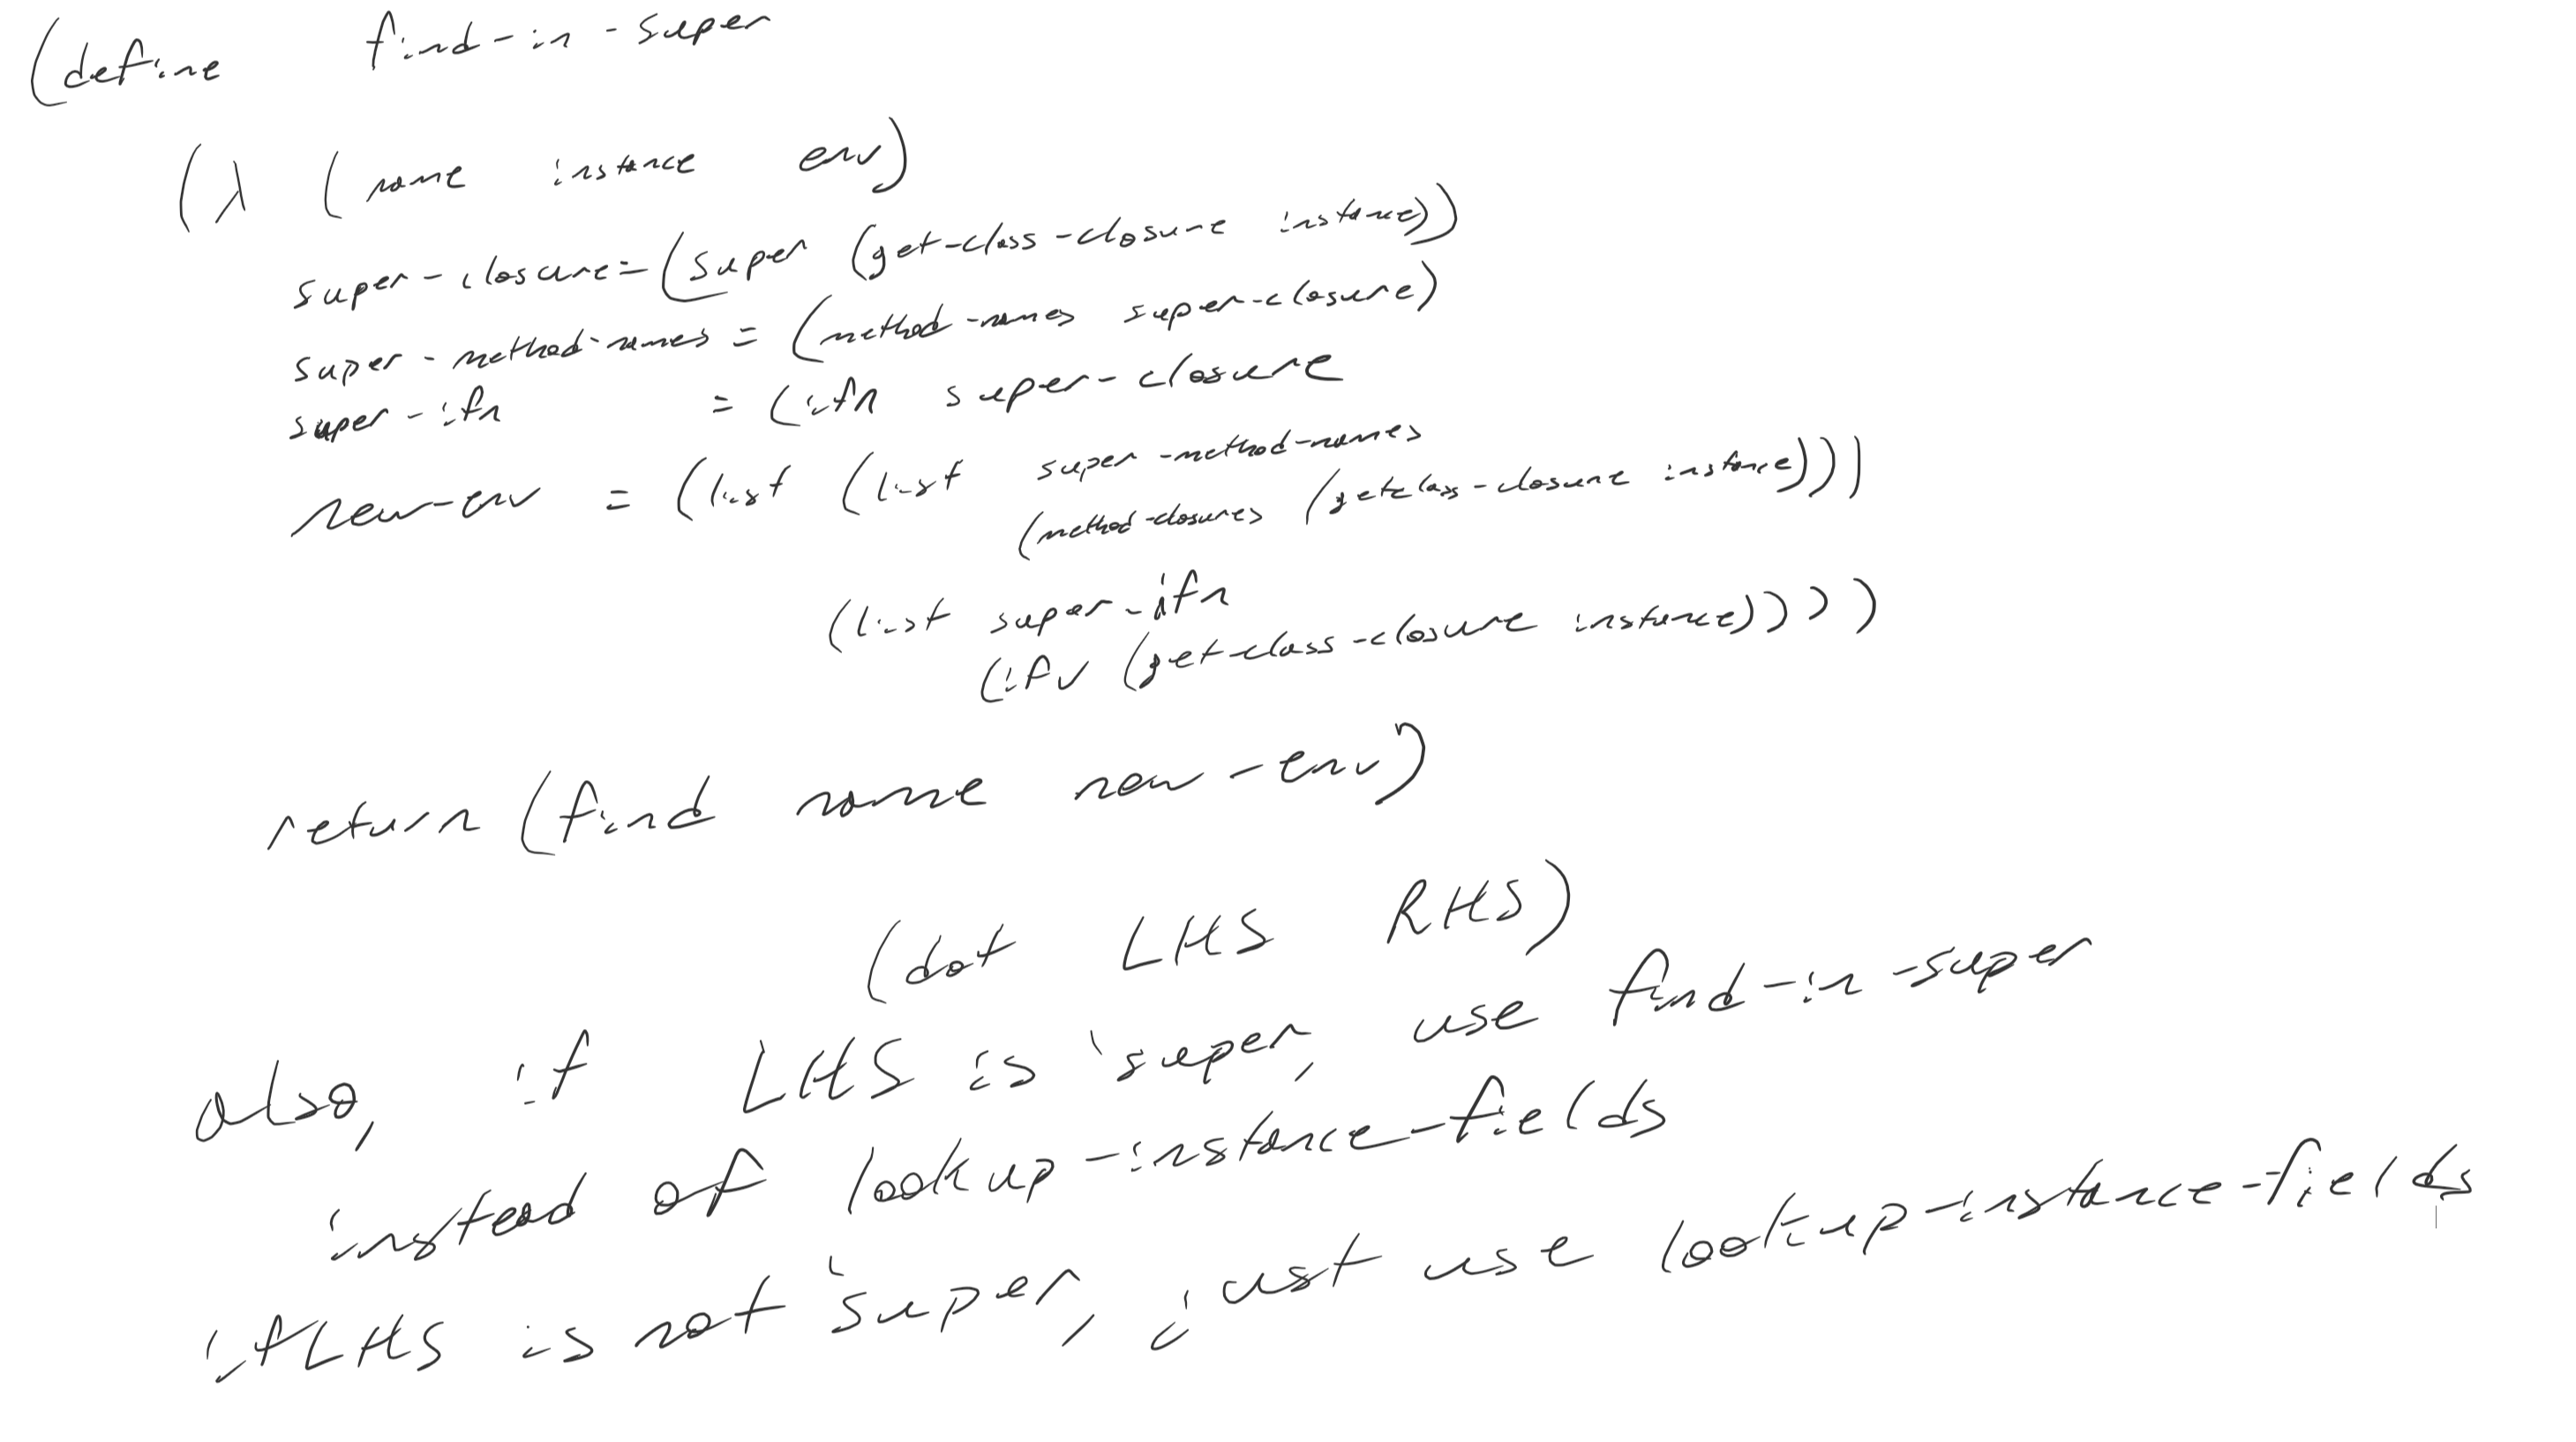 (define find-in-super
(λ (name instance env)
super-closure=(super (get-class-closure instance))
super-method-names = (method-names super-closure)
super-ifn = (ifn super-closure
new-env = (list (list super-method-names
(method-closures (getclass-closure instance)))
(list super-ifn
(ifv (get-class-closure instance))))
return (find name new-env)
(dot LHS RHS)
also, if LHS is 'super, use find-in-super
instead of lookup-instance-fields
if LHS is not 'super, just use lookup-instance-fields